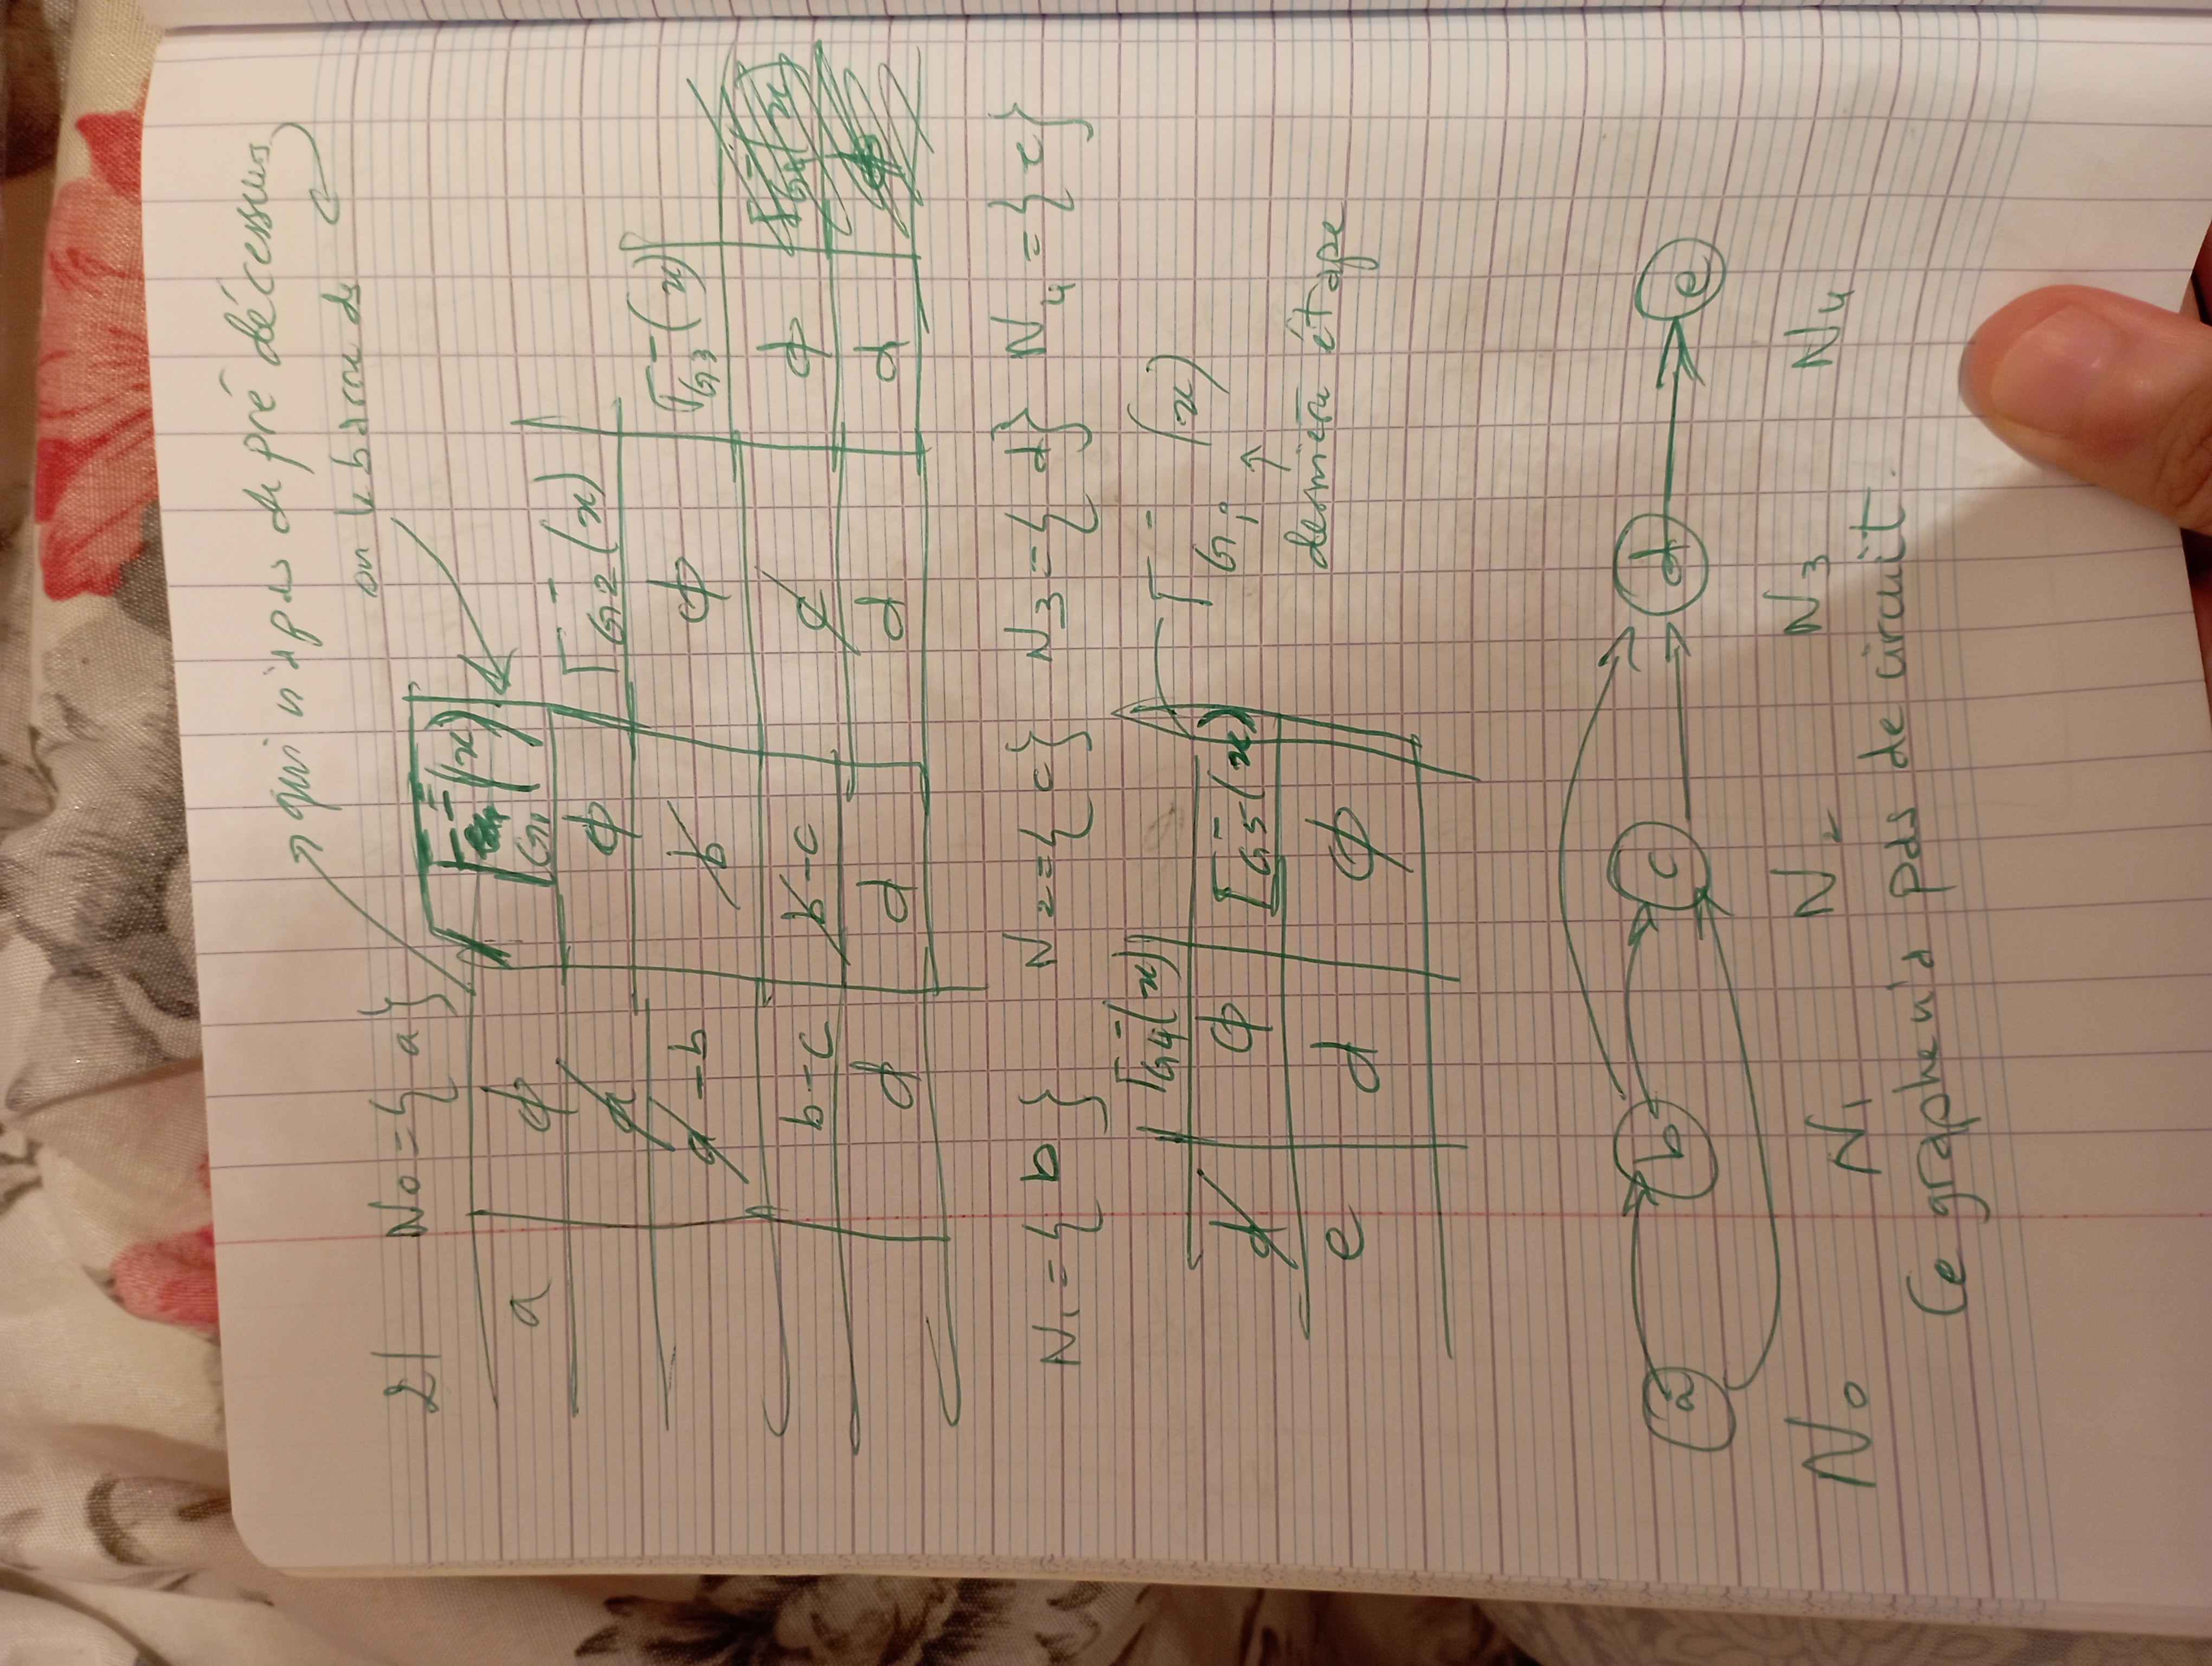 qui n'a pas de prédécesseurs
2) N0 = { a }
on le barre de
a | ϕ | Γ⁻G1(x)
a | ϕ | Γ⁻G2(x)
a - b | b | ϕ | Γ⁻G3(x)
b - c | b - c | c | ϕ
d | d | d | d
N1 = { b } N2 = { c } N3 = { d } N4 = { e }
d | Γ⁻G4(x)
ϕ | Γ⁻G5(x)
e | d | ϕ
Γ⁻Gi (x)
↑
dernière étape
a b c d e
N0 N1 N2 N3 N4
Ce graphe n'a pas de circuit